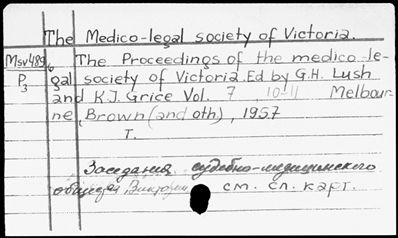 The Medico-legal society of Victoria.
Msv489/6 The Proceedings of the medico-le-
P3 gal society of Victoria. Ed by G.H. Lush
and K.J. Grice Vol. 7 10-11 Melbour-
ne, Brown (and oth), 1957
T.
Заседания судебно-медицинского
общества Виктории см. сл. карт.